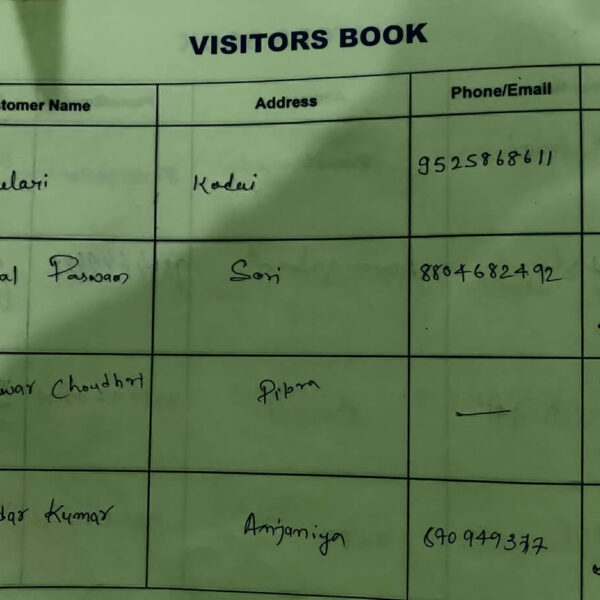 VISITORS BOOK
stomer Name Address Phone/Email
elari Kodai 9525868611
al Paswan Sori 8804682492
war Choudhri Pipra —
dar Kumar Anjaniya 690949377